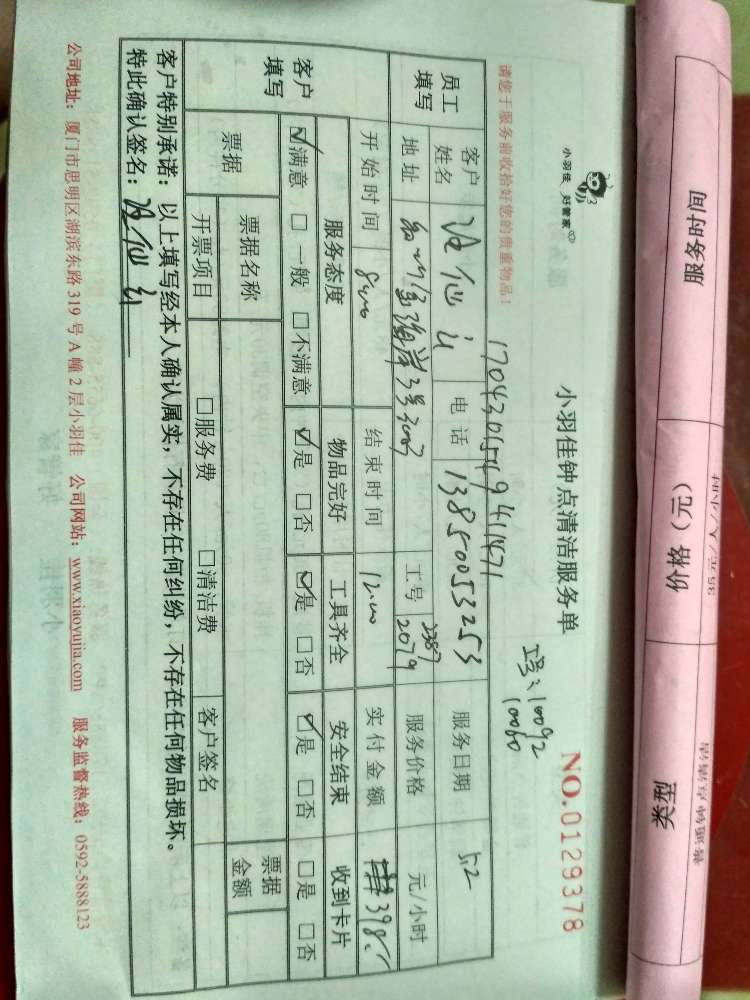 服务时间 价格（元） 类型
小羽佳 好管家
小羽佳钟点清洁服务单
NO.0129378
工号：10092
10060
请您于服务前收拾好您的贵重物品！
员工填写
客户姓名 电话 13850053253 服务日期 5.2
地址 3号 工号 2387 2079 服务价格 元/小时
开始时间 8:00 结束时间 12:00 实付金额 398
客户填写
服务态度 物品完好 工具齐全 安全结束 收到卡片
☑满意 □一般 □不满意 ☑是 □否 ☑是 □否 ☑是 □否 □是 □否
票据 票据名称 票据金额
开票项目 □服务费 □清洁费 客户签名
客户特别承诺：以上填写经本人确认属实，不存在任何纠纷，不存在任何物品损坏。
特此确认签名：
公司地址：厦门市思明区湖滨东路 319 号 A 幢 2 层小羽佳 公司网站：www.xiaoyujia.com 服务监督热线：0592-5888123